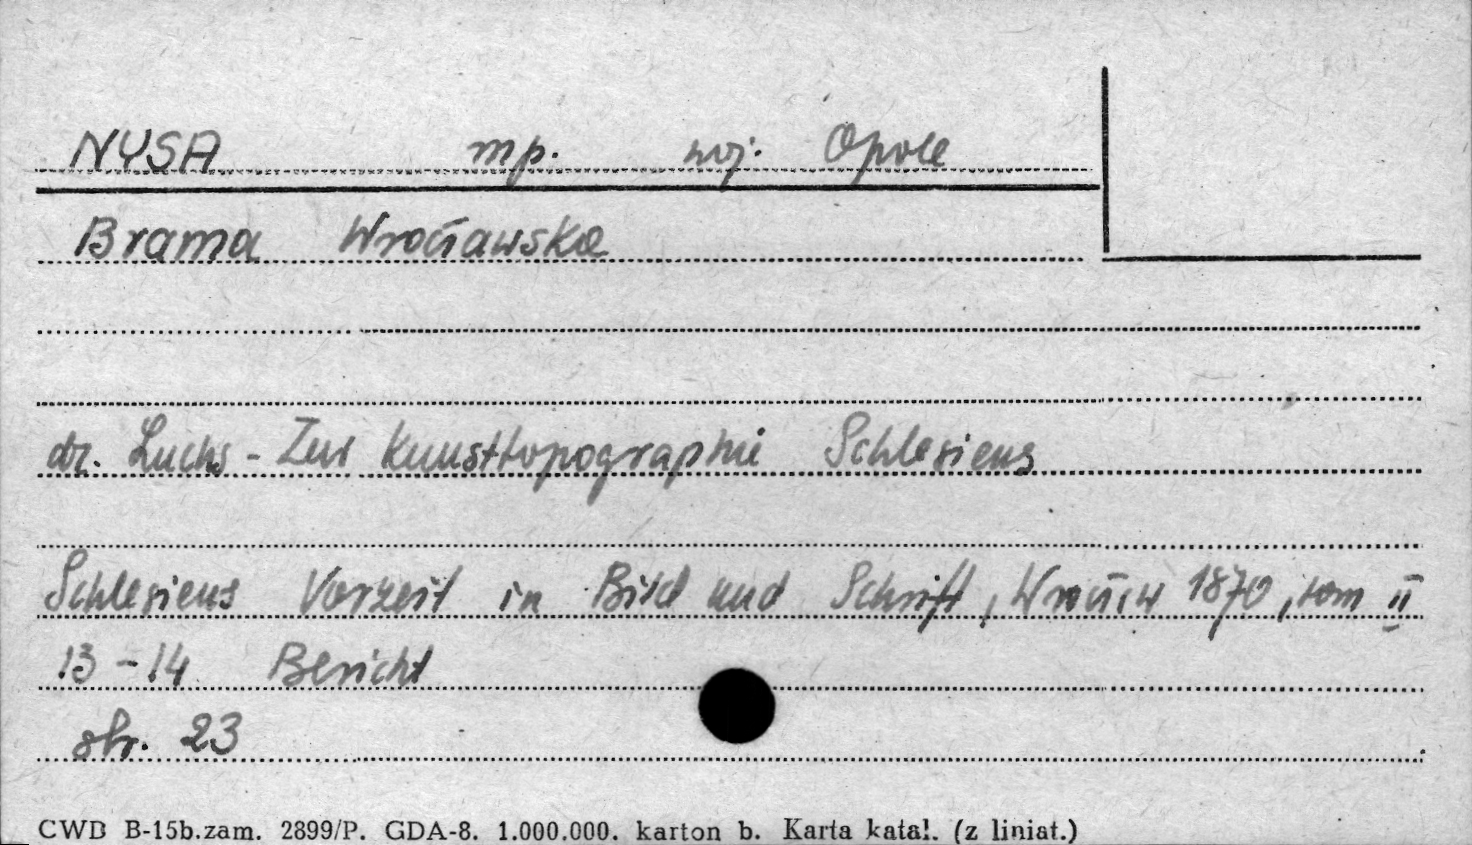 NYSA mp. woj. Opole
Brama Wrocławska
dr. Luchs - Zur Kunsttopographie Schlesiens
Schlesiens Vorzeit in Bild und Schrift, Wrocław 1870, tom II
13-14 Bericht
str. 23
CWD B-15b.zam. 2899/P. GDA-8. 1.000.000. karton b. Karta katal. (z liniat.)